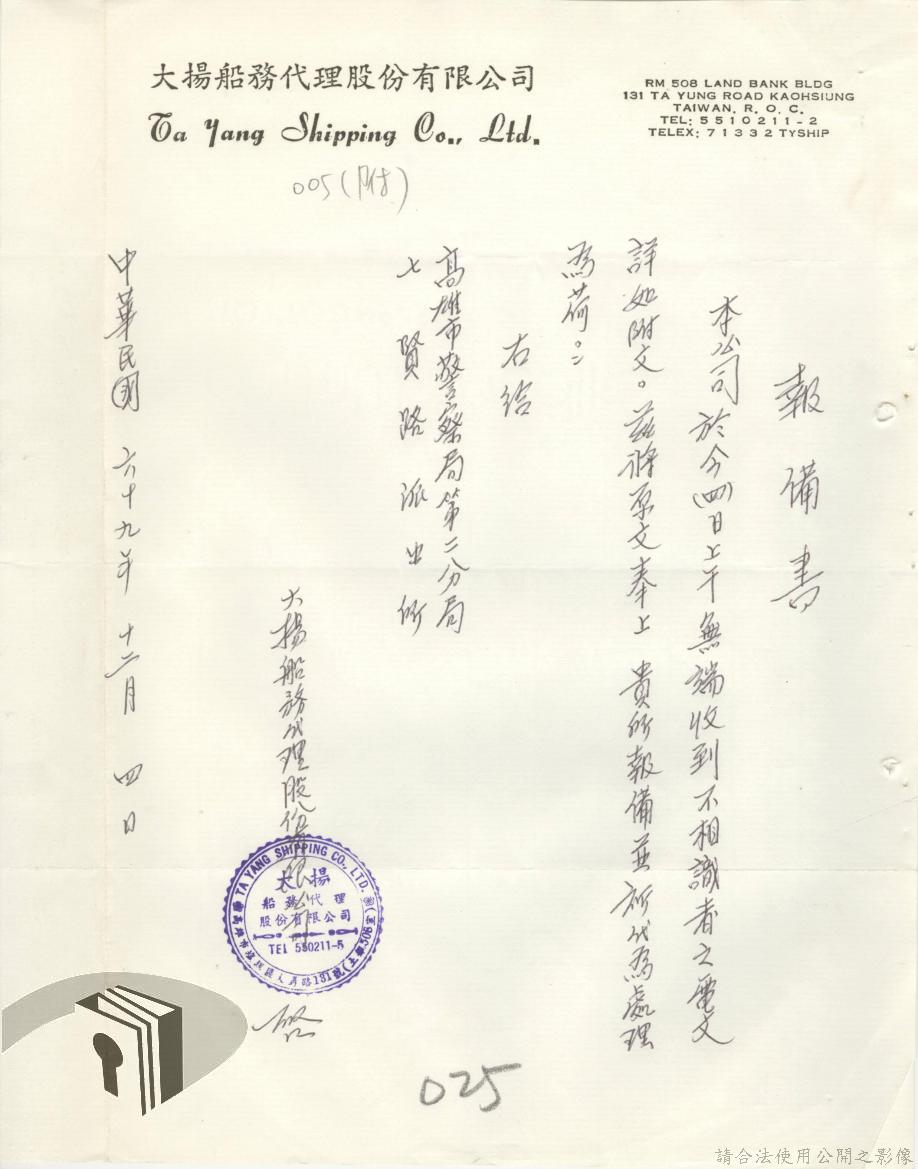 大揚船務代理股份有限公司
Ta Yang Shipping Co., Ltd.
RM 508 LAND BANK BLDG
131 TA YUNG ROAD KAOHSIUNG
TAIWAN, R. O. C.
TEL: 5 5 1 0 2 1 1 - 2
TELEX: 7 1 3 3 2 TYSHIP
005(附)
報備書
本公司於今(四)日上午無端收到不相識者之電文
詳如附文。茲將原文奉上 貴所報備並祈代為處理
為荷。
右給
高雄市警察局第二分局
七賢路派出所
大揚船務代理股份有限公司 啓
TA YANG SHIPPING CO., LTD.
大揚
船務代理
股份有限公司
TEL 550211-5
中華民國 六十九年 十二月 四日
025
請合法使用公開之影像